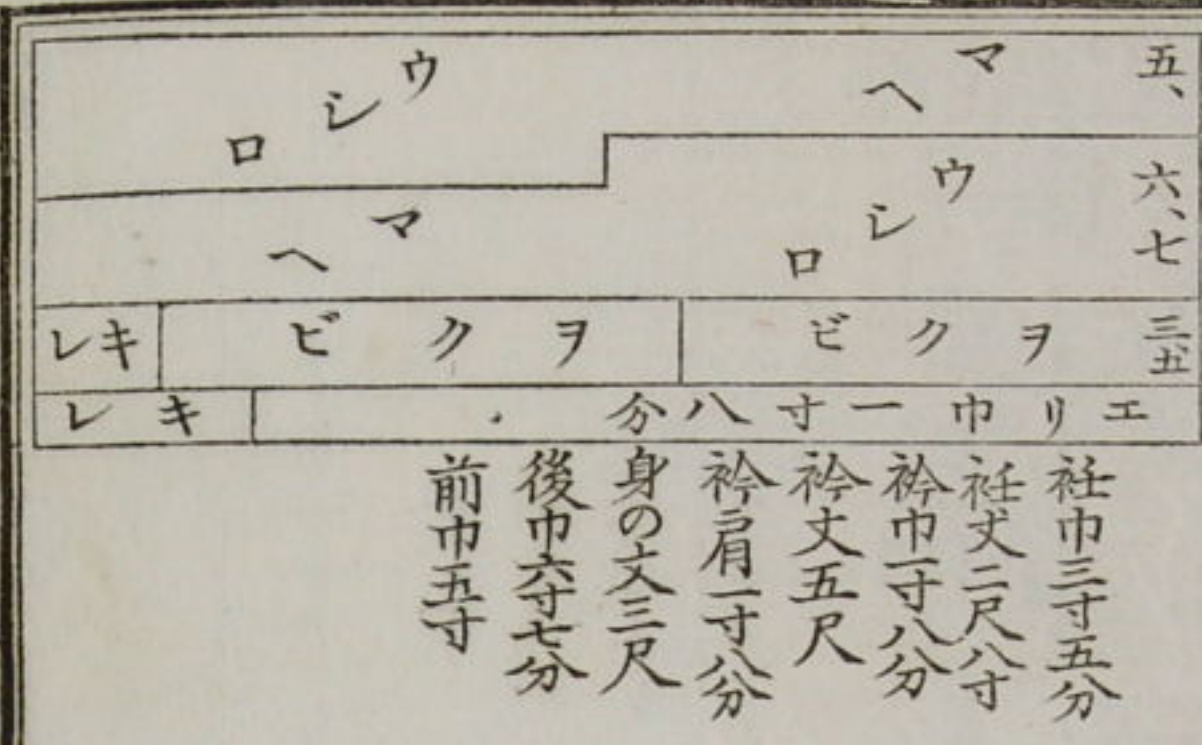 五、
マヘ
ウシロ
六、七
ウシロ
マヘ
三、五
ヲクビ
ヲクビ
キレ
エリ巾一寸八分
キレ
衽巾三寸五分
衽丈二尺八寸
衿巾一寸八分
衿丈五尺
衿肩一寸八分
身の丈三尺
後巾六寸七分
前巾五寸